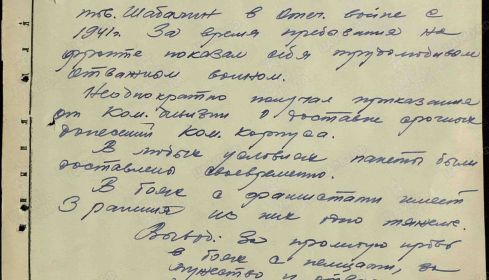 тов. Шабалин в Отеч. войне с
1941г. За время пребывания на
фронте показал себя трудолюбивым
отважным воином.
Неоднократно получал приказания
от Ком. дивизии о доставке срочных
донесений Ком. корпуса.
В любых условиях пакеты были
доставлены своевременно.
В боях с фашистами имеет
3 ранения из них одно тяжелое.
Вывод: За пролитую кровь
в боях с немцами за
мужество и